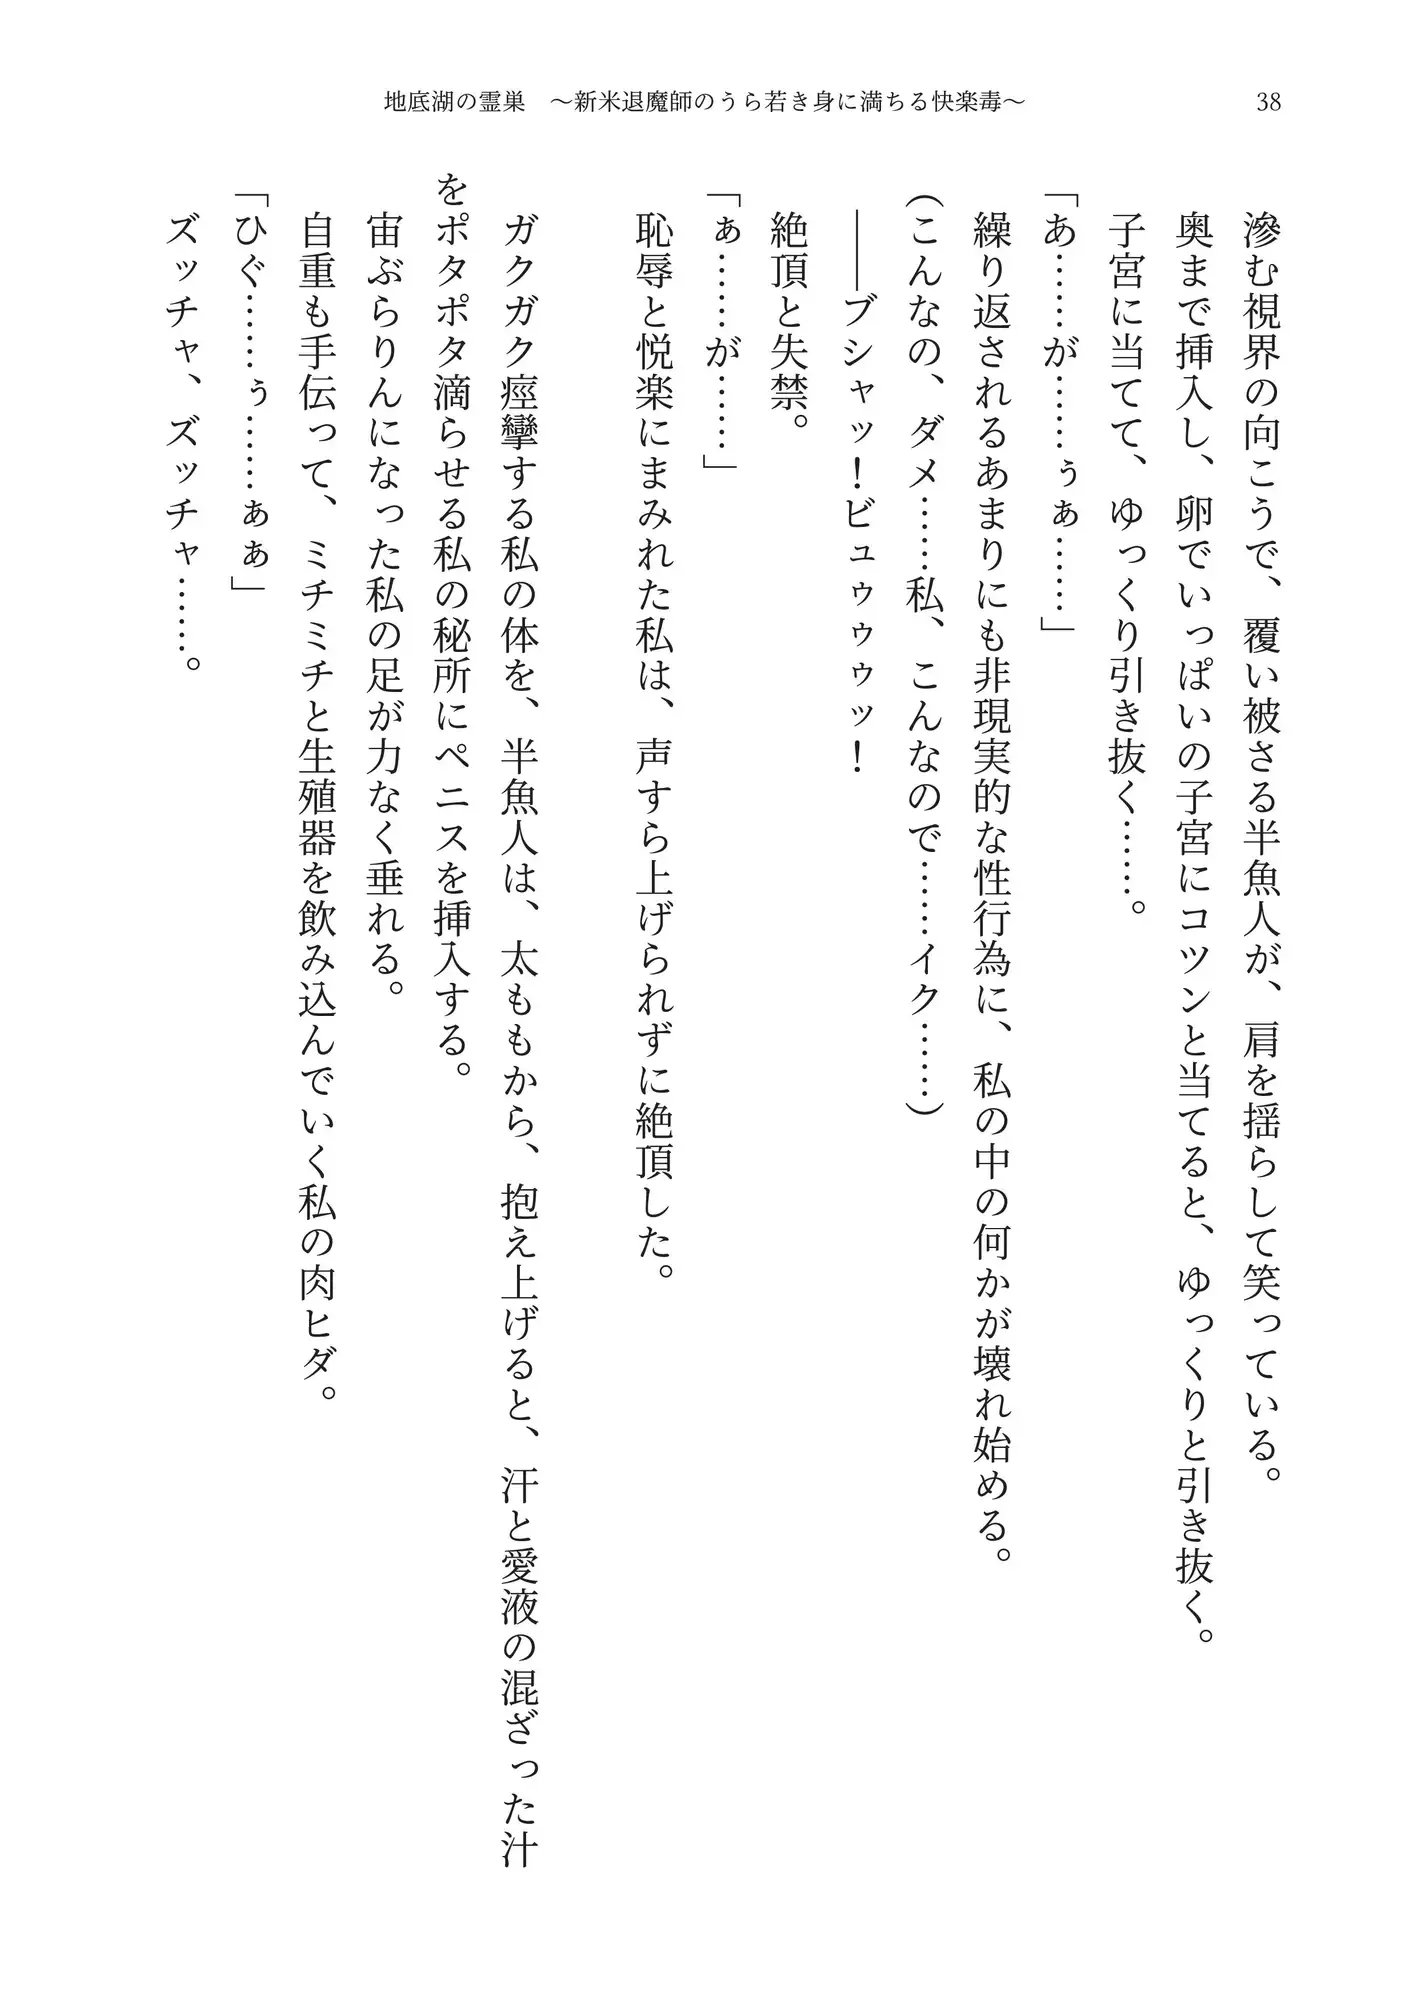 地底湖の霊巣　～新米退魔師のうら若き身に満ちる快楽毒～
38
滲む視界の向こうで、覆い被さる半魚人が、肩を揺らして笑っている。
奥まで挿入し、卵でいっぱいの子宮にコツンと当てると、ゆっくりと引き抜く。
子宮に当てて、ゆっくり引き抜く……。
「あ……が……ぅぁ……」
繰り返されるあまりにも非現実的な性行為に、私の中の何かが壊れ始める。
（こんなの、ダメ……私、こんなので……イク……）
――ブシャッ！ビュゥゥゥッ！
絶頂と失禁。
「ぁ……が……」
恥辱と悦楽にまみれた私は、声すら上げられずに絶頂した。
ガクガク痙攣する私の体を、半魚人は、太ももから、抱え上げると、汗と愛液の混ざった汁
をポタポタ滴らせる私の秘所にペニスを挿入する。
宙ぶらりんになった私の足が力なく垂れる。
自重も手伝って、ミチミチと生殖器を飲み込んでいく私の肉ヒダ。
「ひぐ……ぅ……ぁぁ」
ズッチャ、ズッチャ……。